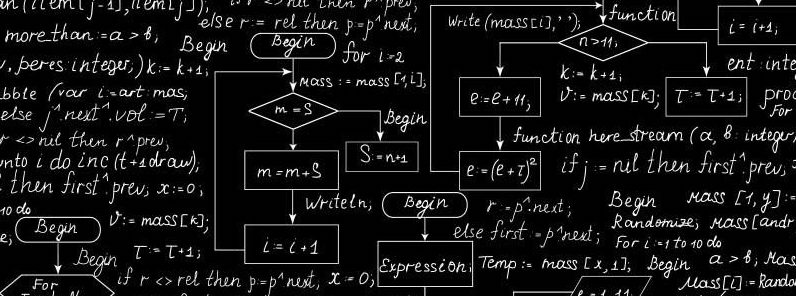 else r:= rel then p=p^next;
function
write (mass[i],' ');
i = i+1;
more_than:=a > b;
Begin
Begin
for i:=2
n>11;
peres:integer;) k:= k+1;
mass := mass [1,i];
k:= k+1;
(var i:=art: mas;
e:=e+11;
v:= mass[k];
τ:= τ+1;
else j^.next^.vol:=T;
m = S
Begin
<>nil then r^prev,
function here_stream (a, b: integer
i do inc (t+1draw);
m = m+S
S:=n+1
e:=(e+τ)²
if j:= nil then first^.prev,
then first^.prev; x:=0;
writeln;
Begin
r:=p^.next;
Begin
mass [1,y]:=
10 do
Begin
v:= mass[k];
else first:=p^next;
Randomize;
For i:=1 to 10 do
τ:= τ+1;
i = i+1
Begin
Expression;
Temp:= mass [x,1];
Begin
a > b;
For
if r <> rel then p=p^next, x:=0;
mass[i]:=